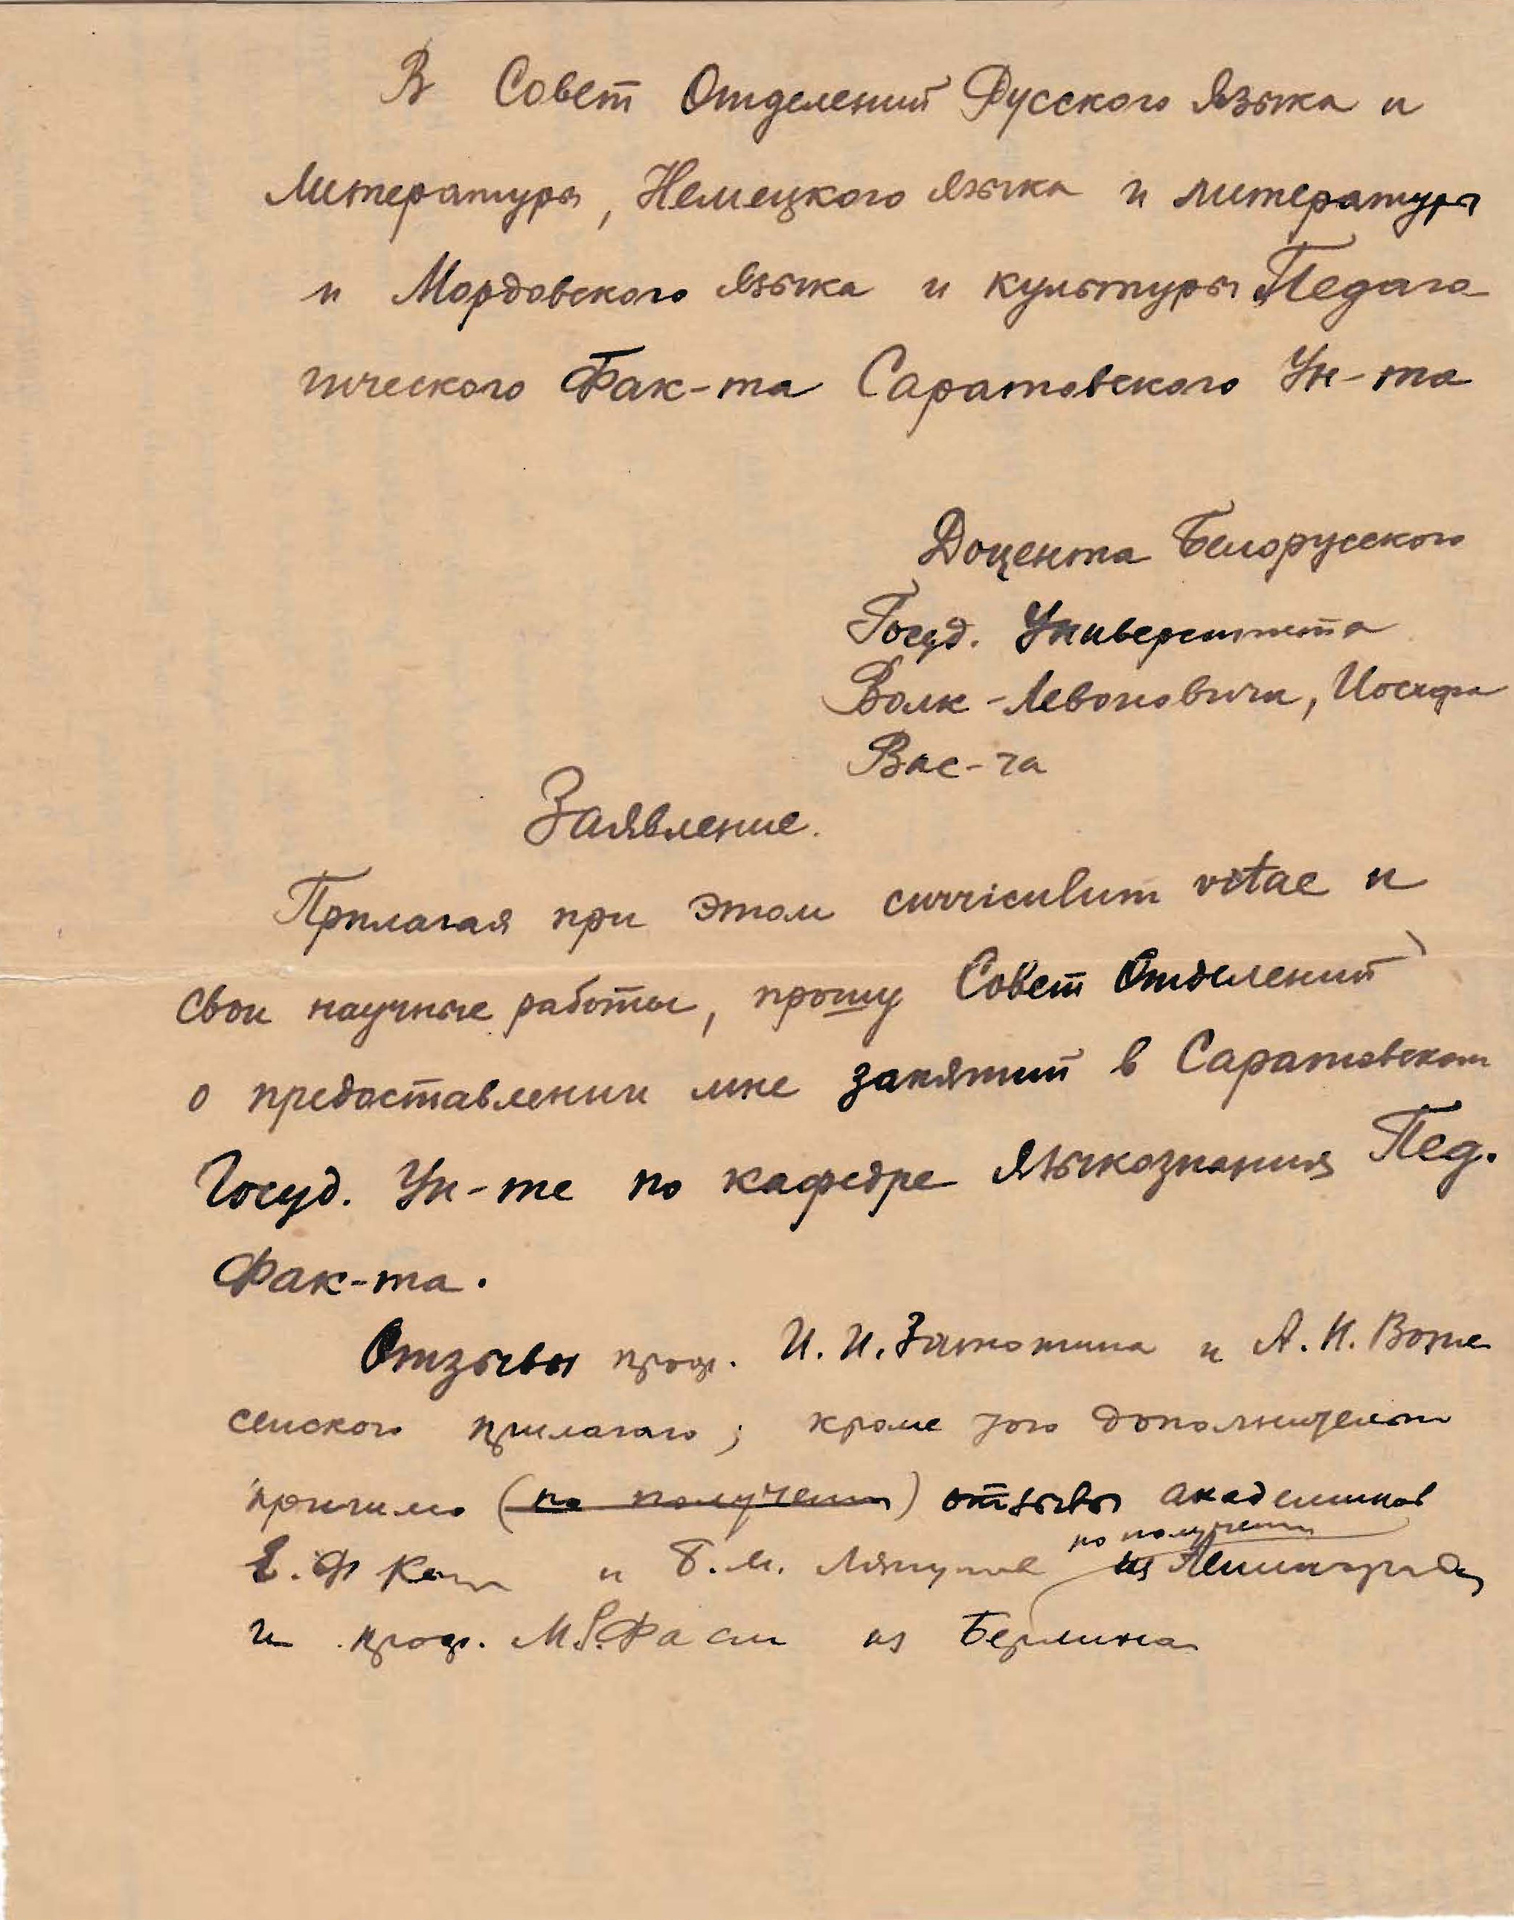 В Совет Отделений Русского Языка и
Литературы, Немецкого языка и литературы
и Мордовского языка и культуры Педаго
гического Фак-та Саратовского Ун-та
Доцента Белорусского
Госуд. Университета
Волк-Левоновича, Иосифа
Вас-ча
Заявление.
Прилагая при этом curriculum vitae и
свои научные работы, прошу Совет Отделений
о предоставлении мне занятий в Саратовском
Госуд. Ун-те по кафедре языкознания Пед.
Фак-та.
Отзывы проф. И. И. Замотина и А. Н. Возне
сенского прилагаю; кроме того дополнительно
пришлю (по получении) отзывы академиков
по получении
Е. Ф и Б. М. Ляпунова из Ленинграда
и проф. М. из Берлина